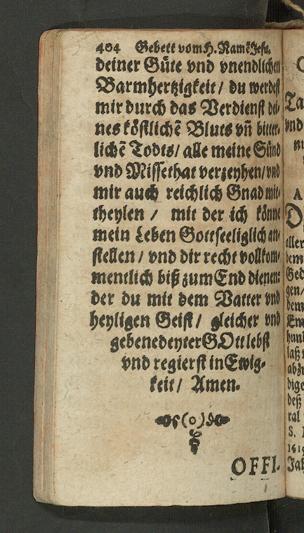 404 Gebett vom H. Namē Jesu.
deiner Güte vnd vnendlichen
Barmhertzigkeit / du werdest
mir durch das Verdienst dei-
nes köstlichē Bluts vñ bitter-
lichē Todts / alle meine Sünd
vnd Missethat verzeyhen / vnd
mir auch reichlich Gnad mit-
theylen / mit der ich könne
mein Leben Gottseeliglich an-
stellen / vnd dir recht vollkom-
mentlich biß zum End dienen:
der du mit dem Vatter vnd
heyligen Geist / gleicher vnd
gebenedeyter GOtt lebst
vnd regierst in Ewig-
keit / Amen.
(o)
OFFI-